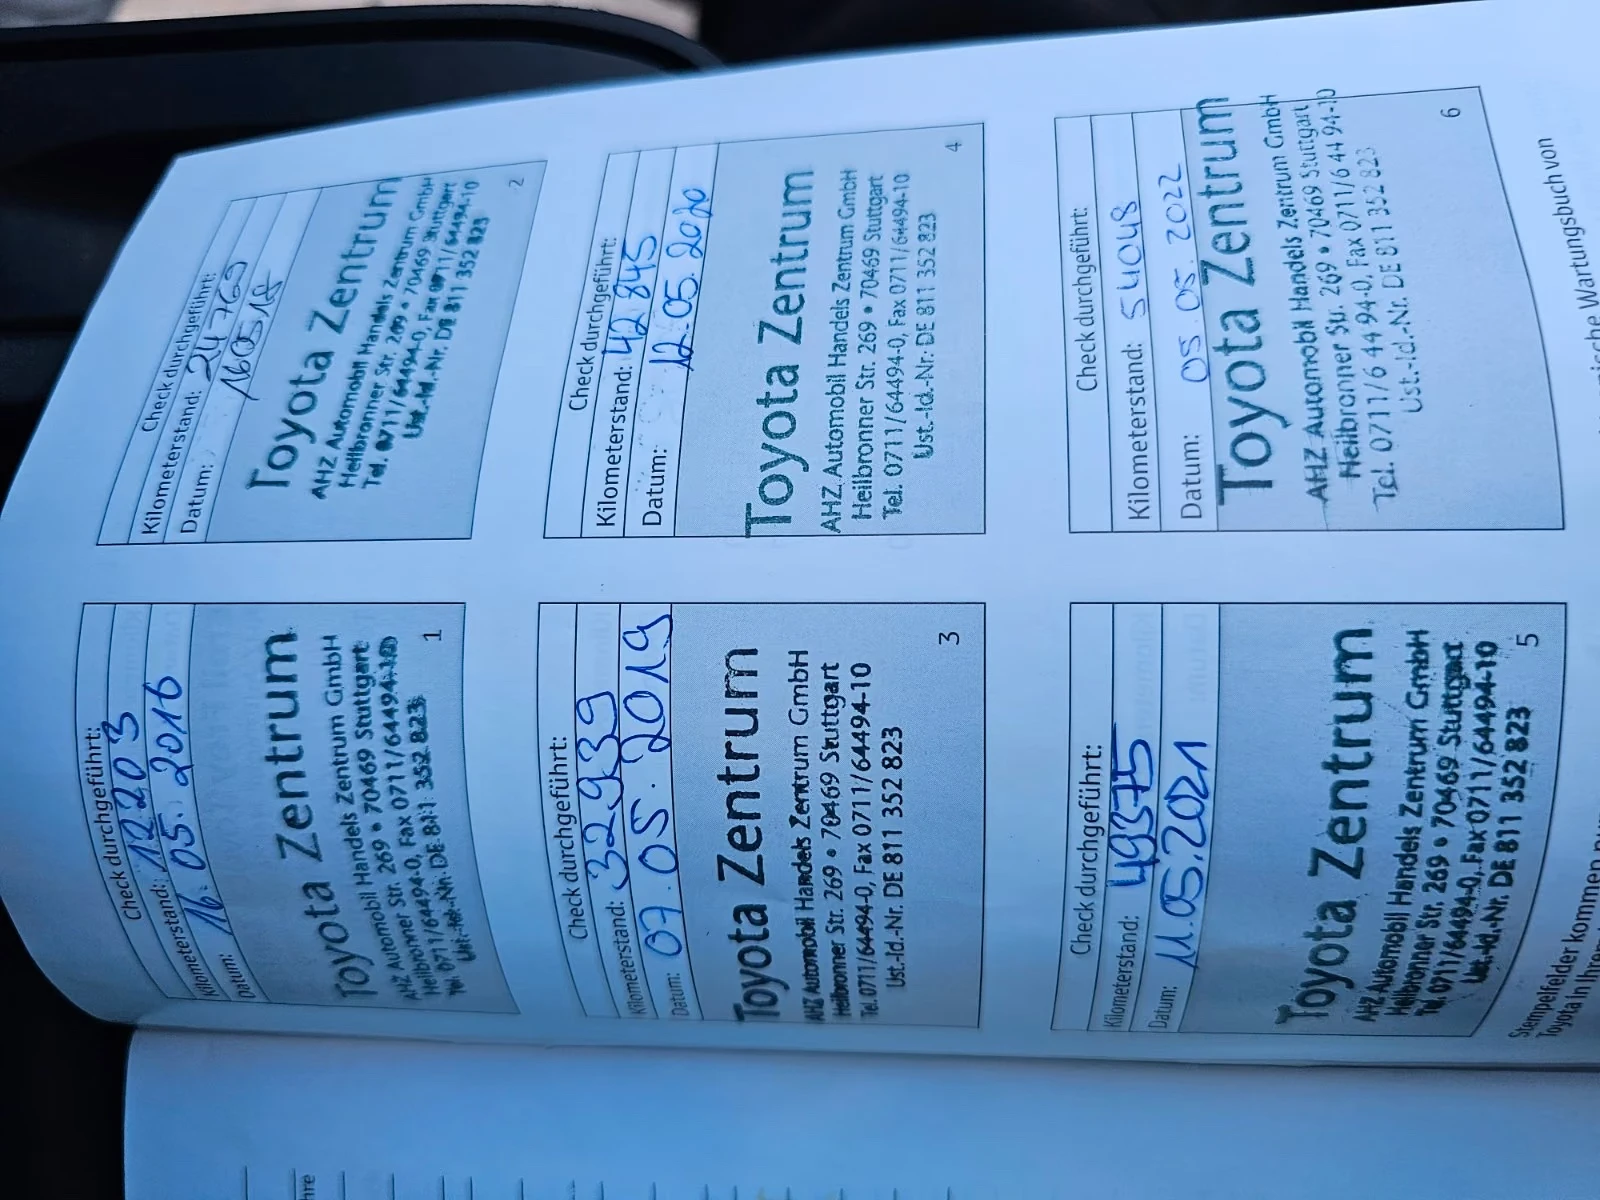 Check durchgeführt:
Kilometerstand: 12203
Datum: 16.05.2016
Toyota Zentrum
AHZ Automobil Handels Zentrum GmbH
Heilbronner Str. 269 • 70469 Stuttgart
Tel. 0711/64494-0, Fax 0711/64494-10
Ust.-Id.-Nr. DE 811 352 823
1
Check durchgeführt:
Kilometerstand: 24769
Datum: 160518
Toyota Zentrum
AHZ Automobil Handels Zentrum GmbH
Heilbronner Str. 269 • 70469 Stuttgart
Tel. 0711/64494-0, Fax 0711/64494-10
Ust.-Id.-Nr. DE 811 352 823
2
Check durchgeführt:
Kilometerstand: 32939
Datum: 07.05.2019
Toyota Zentrum
AHZ Automobil Handels Zentrum GmbH
Heilbronner Str. 269 • 70469 Stuttgart
Tel. 0711/64494-0, Fax 0711/64494-10
Ust.-Id.-Nr. DE 811 352 823
3
Check durchgeführt:
Kilometerstand: 42845
Datum: 12.05.2020
Toyota Zentrum
AHZ Automobil Handels Zentrum GmbH
Heilbronner Str. 269 • 70469 Stuttgart
Tel. 0711/64494-0, Fax 0711/64494-10
Ust.-Id.-Nr. DE 811 352 823
4
Check durchgeführt:
Kilometerstand: 49575
Datum: 11.05.2021
Toyota Zentrum
AHZ Automobil Handels Zentrum GmbH
Heilbronner Str. 269 • 70469 Stuttgart
Tel. 0711/64494-0, Fax 0711/64494-10
Ust.-Id.-Nr. DE 811 352 823
5
Check durchgeführt:
Kilometerstand: 54048
Datum: 05.05.2022
Toyota Zentrum
AHZ Automobil Handels Zentrum GmbH
Heilbronner Str. 269 • 70469 Stuttgart
Tel. 0711/6 44 94-0, Fax 0711/6 44 94-10
Ust.-Id.-Nr. DE 811 352 823
6
Stempelfelder kommen Wartungsbuch von
Toyota in Ihrem